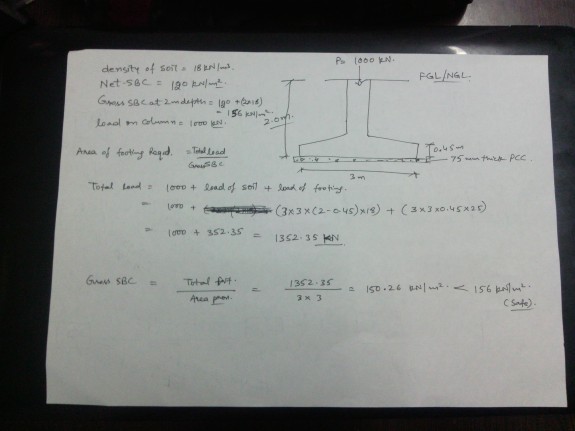 density of soil = 18 kN/m³.
Net-SBC = 120 kN/m².
Gross SBC at 2m depth = 120 + (2x18)
= 156 kN/m².
load on column = 1000 kN.
P= 1000 kN.
FGL/NGL.
2.0m.
0.45m
75 mm thick PCC.
3m
Area of footing Reqd. = Total load / Gross SBC
Total load = 1000 + load of soil + load of footing.
= 1000 + (3x3x(2-0.45)x18) + (3x3x0.45x25)
= 1000 + 352.35 = 1352.35 kN.
Gross SBC = Total / Area prov. = 1352.35 / 3x3 = 150.26 kN/m². < 156 kN/m².
(Safe).